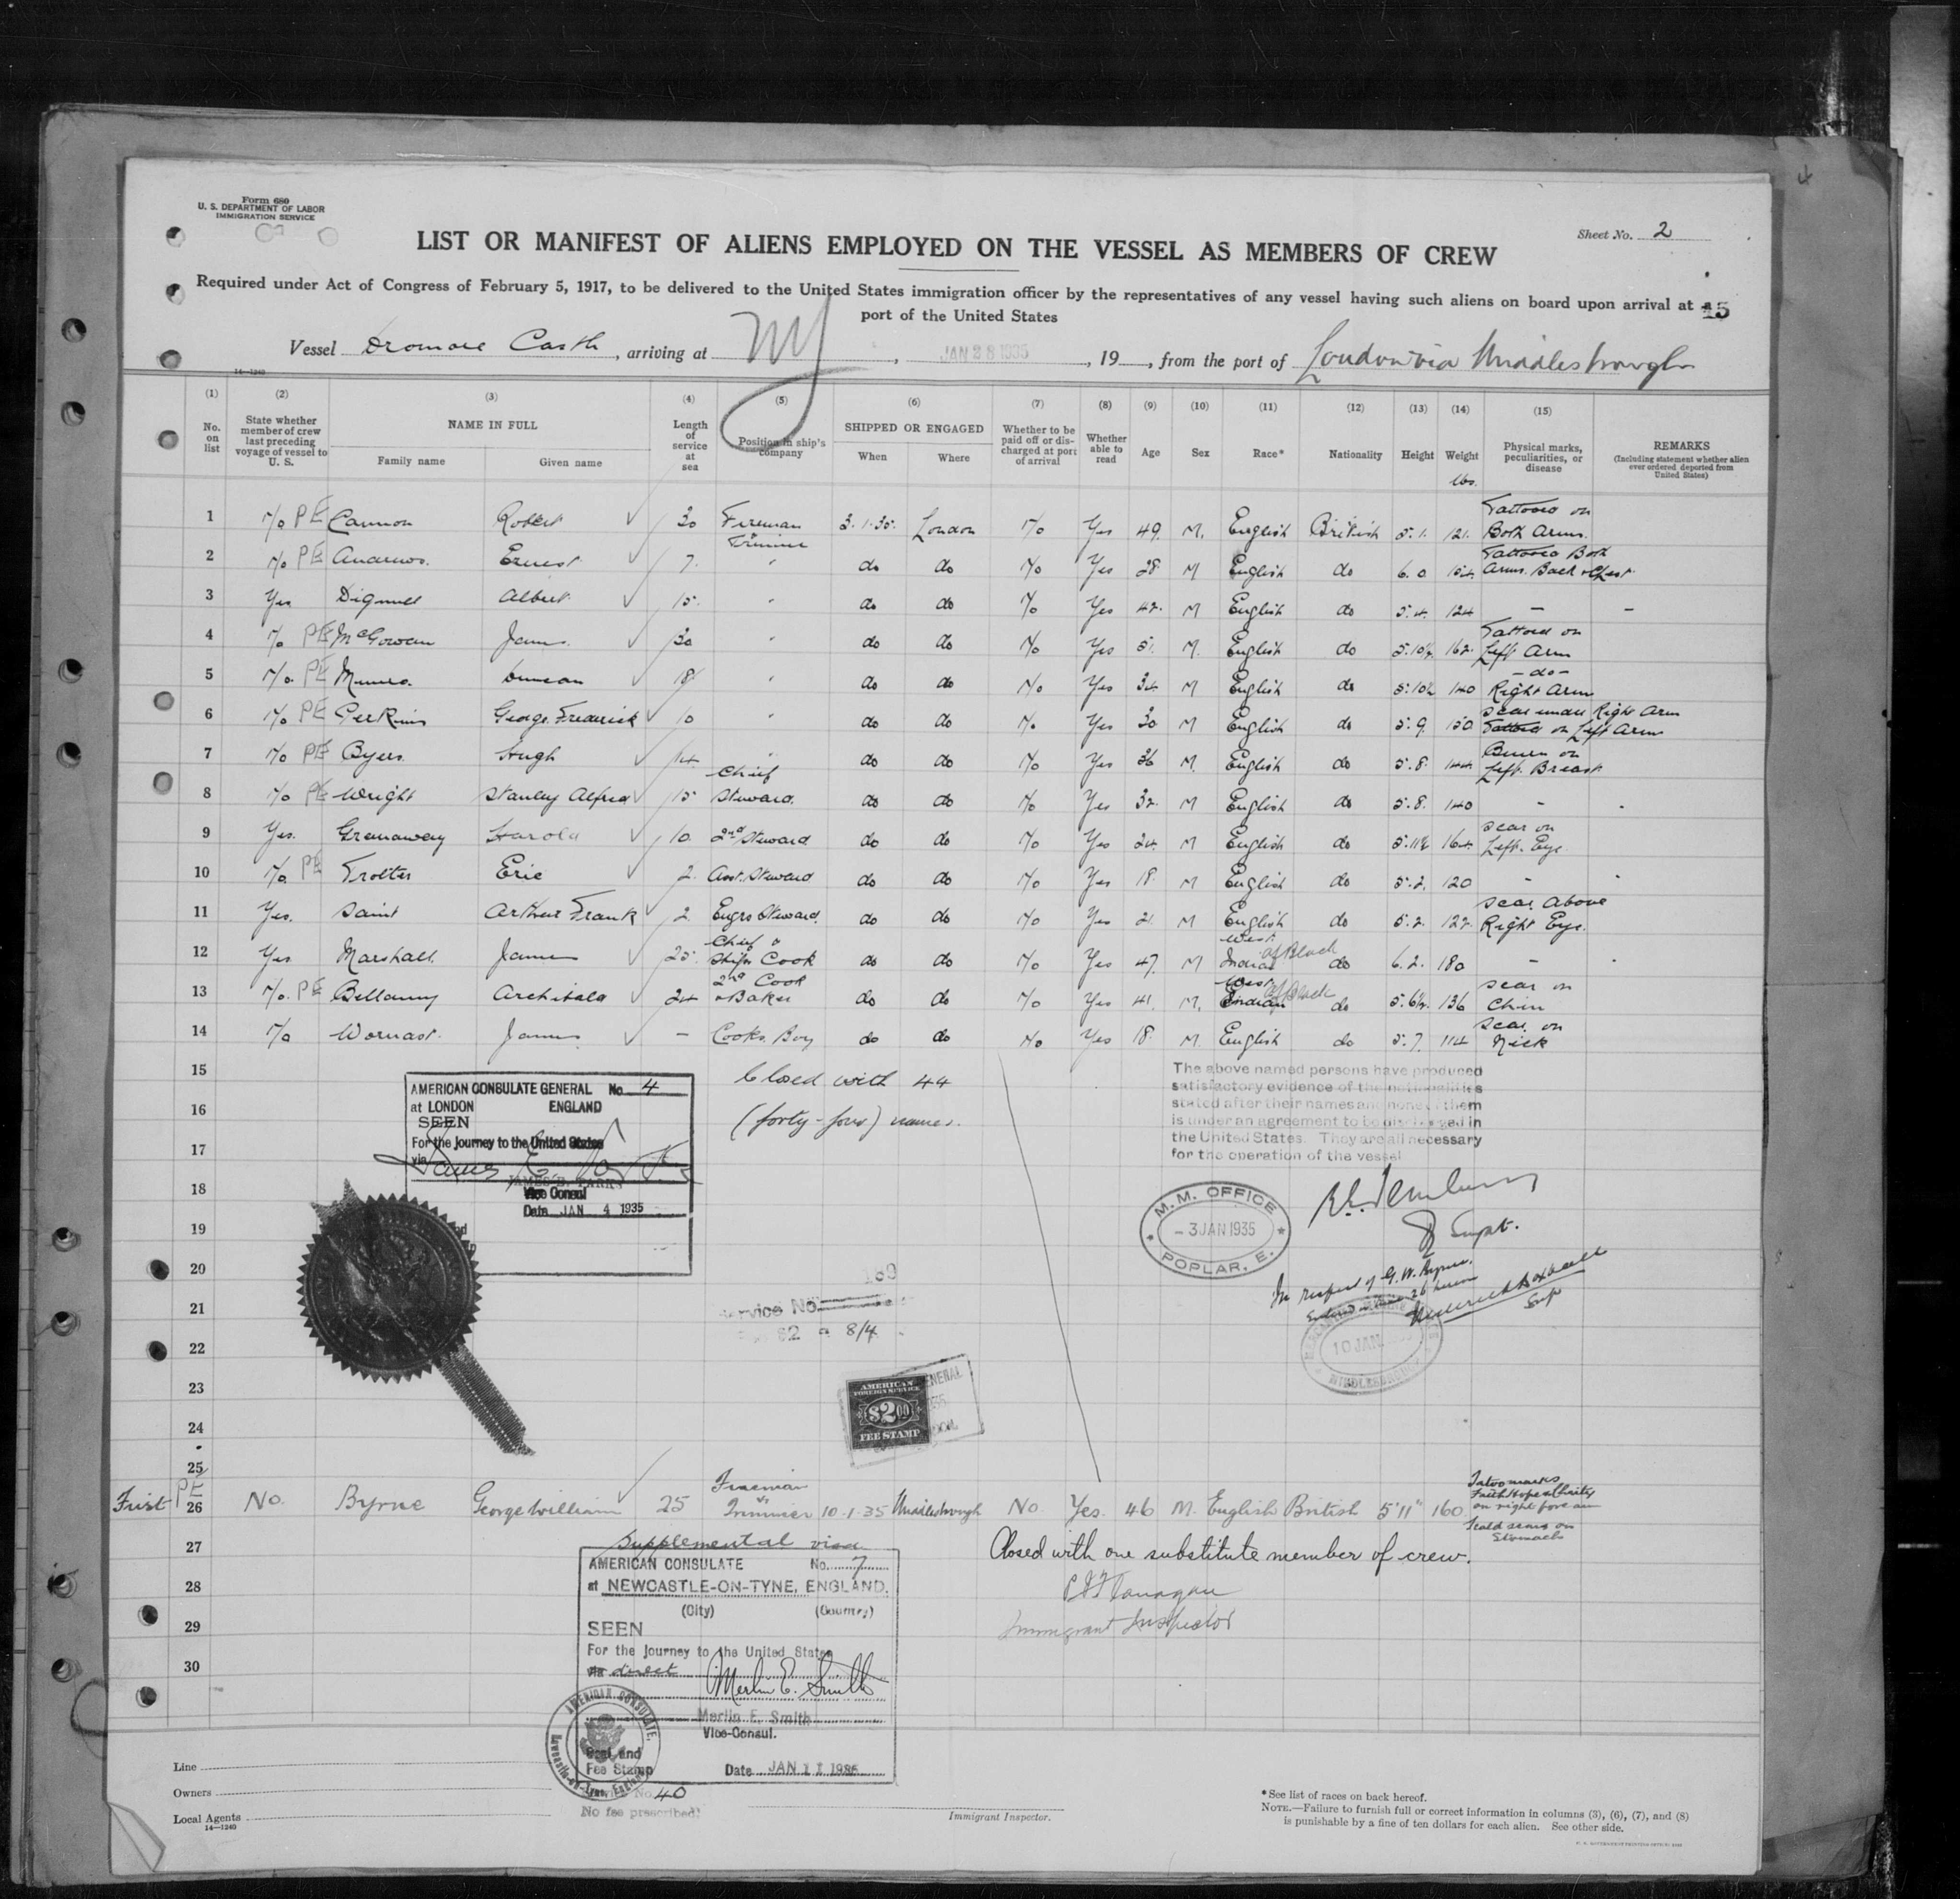 Form 680
U. S. DEPARTMENT OF LABOR
IMMIGRATION SERVICE
Sheet No. 2
LIST OR MANIFEST OF ALIENS EMPLOYED ON THE VESSEL AS MEMBERS OF CREW
Required under Act of Congress of February 5, 1917, to be delivered to the United States immigration officer by the representatives of any vessel having such aliens on board upon arrival at a
port of the United States
15
Vessel Dromore Castle, arriving at NY, JAN 28 1935, 19, from the port of London via Middlesbrough
14—1240
(1) (2) (3) (4) (5) (6) (7) (8) (9) (10) (11) (12) (13) (14) (15)
No. on list
State whether member of crew last preceding voyage of vessel to U. S.
NAME IN FULL
Family name
Given name
Length of service at sea
Position in ship's company
SHIPPED OR ENGAGED
When
Where
Whether to be paid off or discharged at port of arrival
Whether able to read
Age
Sex
Race*
Nationality
Height
Weight
lbs.
Physical marks, peculiarities, or disease
REMARKS
(Including statement whether alien ever ordered deported from United States)
1 No PE Cannon Robert 30 Fireman & Trimmer 3.1.35. London No Yes 49 M. English British 5.1. 121. Tattooed on Both Arms.
2 No PE Andrews. Ernest 7. " do do No Yes 28 M English do 6.0. Tattooed Both Arms. Back & Chest
3 Yes Albert 15. " do do No Yes 42. M English do 5.4. 124 – –
4 No PE McGowan James. 30 " do do No Yes 51. M. English do 5.10½ 162. Tattooed on Left Arm
5 No. PE Munro. Duncan 18 " do do No Yes 34 M English do 5.10½ 140 –do– Right Arm
6 No PE Perkins George Frederick 10 " do do No Yes 30 M English do 5.9. 150 Scar under Right Arm Tattooed on Left Arm
7 No PE Byers. Hugh 14. " do do No Yes 36 M. English do 5.8. 144 Burn on Left. Breast
8 No PE Wright Stanley Alfred 15 Chief Steward. do do No Yes 32. M English do 5.8. 140 –
9 Yes. Greenaway Harold 10. 2nd Steward do do No Yes 24. M English do 5.11½ 164. Scar on Left. Eye
10 No. PE Trotter Eric 2. Asst. Steward do do No Yes 18. M English do 5.2. 120 –
11 Yes. Saint Arthur Frank 2. Engrs Steward. do do No Yes 21 M English do 5.2. 122. Scar Above Right Eye.
12 Yes Marshall. James 25. Chief & Ships Cook do do No Yes 47. M West Indian Af Black do 6.2. 180 –
13 No. PE Bellamy Archibald 24 2nd Cook & Baker do do No Yes 41. M. West Indian Af Black do 5.6½. 136 Scar on Chin
14 No James – Cooks. Boy do do No. Yes 18. M. English do 5.7. 114 Scar on Neck
15
16
17
18
19
20
21
22
23
24
25
Closed with 44
(forty-four) names.
AMERICAN CONSULATE GENERAL No 4
at LONDON ENGLAND
SEEN
For the journey to the United States
via
JAMES E. PARKS
Vice Consul
Date JAN 4 1935
The above named persons have produced
satisfactory evidence of the nationalities
stated after their names and none of them
is under an agreement to be discharged in
the United States. They are all necessary
for the operation of the vessel
M.M. OFFICE
– 3 JAN 1935
POPLAR, E.
Supt.
In respect of G. W. Byrne.
Supt
10 JAN
MIDDLESBROUGH
Service No.
8/4
AMERICAN
FOREIGN SERVICE
$2.00
FEE STAMP
First PE 26 No. Byrne George William 25 Fireman & Trimmer 10-1-35 Middlesbrough No. Yes. 46 M. English British 5'11" 160 Tatoo marks Faith Hope & Charity on right fore arm Scald scars on Stomach
27 Supplemental visa
Closed with one substitute member of crew.
AMERICAN CONSULATE No. 7
28 at NEWCASTLE-ON-TYNE, ENGLAND.
(City) (Country)
P Flanagan
29 SEEN
Immigrant Inspector
For the journey to the United States
30 via direct Merlin E. Smith
Merlin E. Smith
Vice-Consul.
Seal and
Fee Stamp
Date JAN 11 1935
AMERICAN CONSULATE.
Newcastle-on-Tyne, England
No. 40
No fee prescribed.
Line
Owners
Local Agents
14—1240
Immigrant Inspector.
*See list of races on back hereof.
NOTE.—Failure to furnish full or correct information in columns (3), (6), (7), and (8)
is punishable by a fine of ten dollars for each alien. See other side.